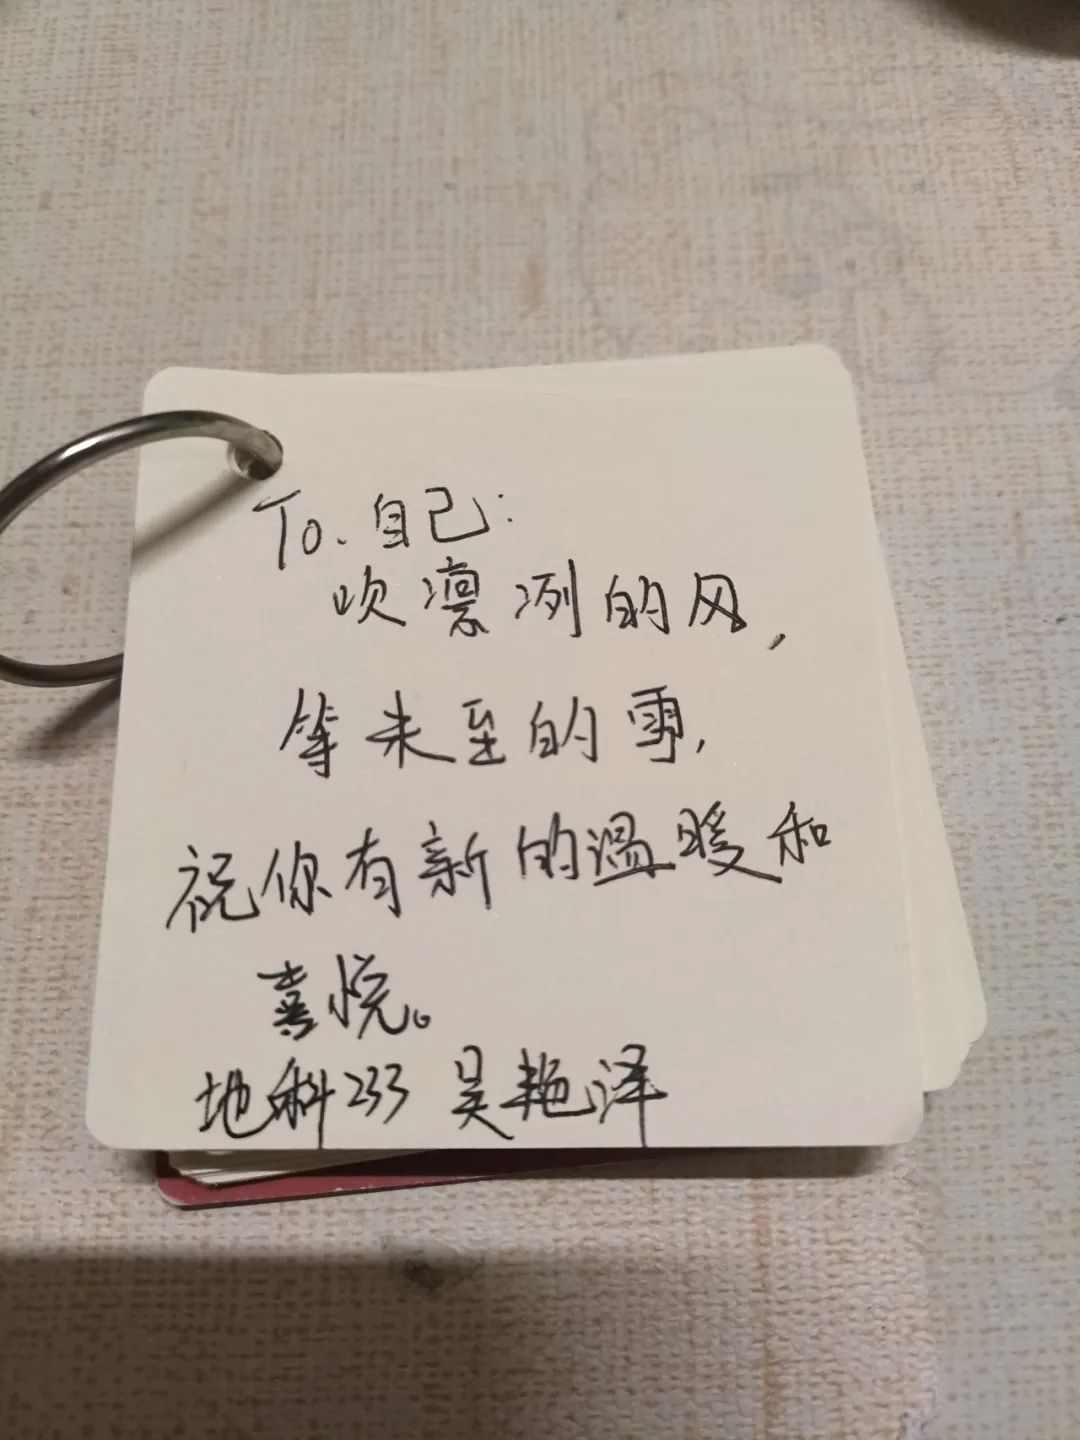 To. 自己:
吹凛冽的风,
等未至的雪,
祝你有新的温暖和
喜悦。
地科233 吴艳泽